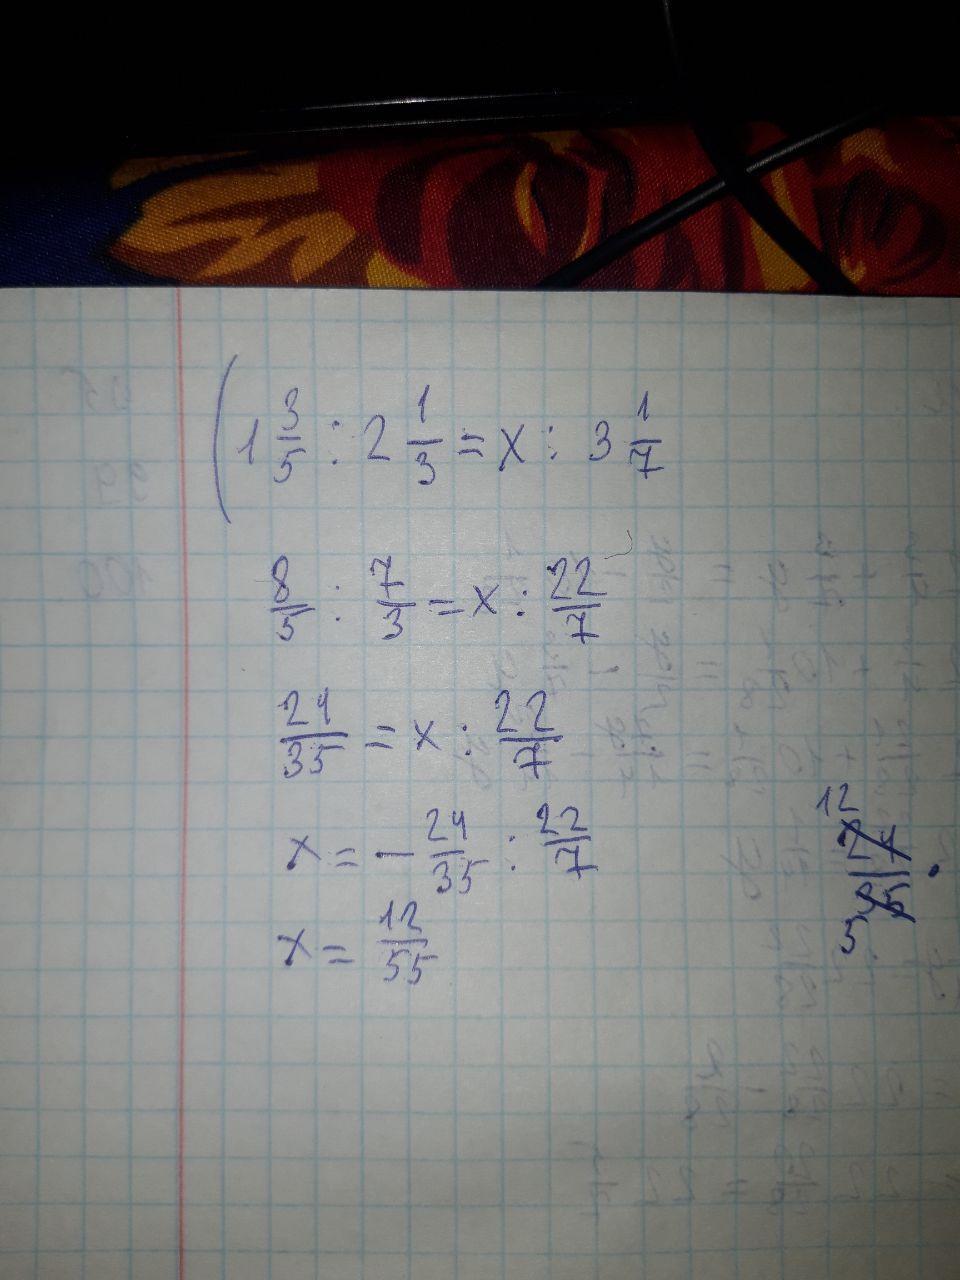 1 3/5 : 2 1/3 = x : 3 1/7
8/5 : 7/3 = x : 22/7
24/35 = x : 22/7
x = - 24/35 : 22/7
x = 12/55
12
24/35 ·
5